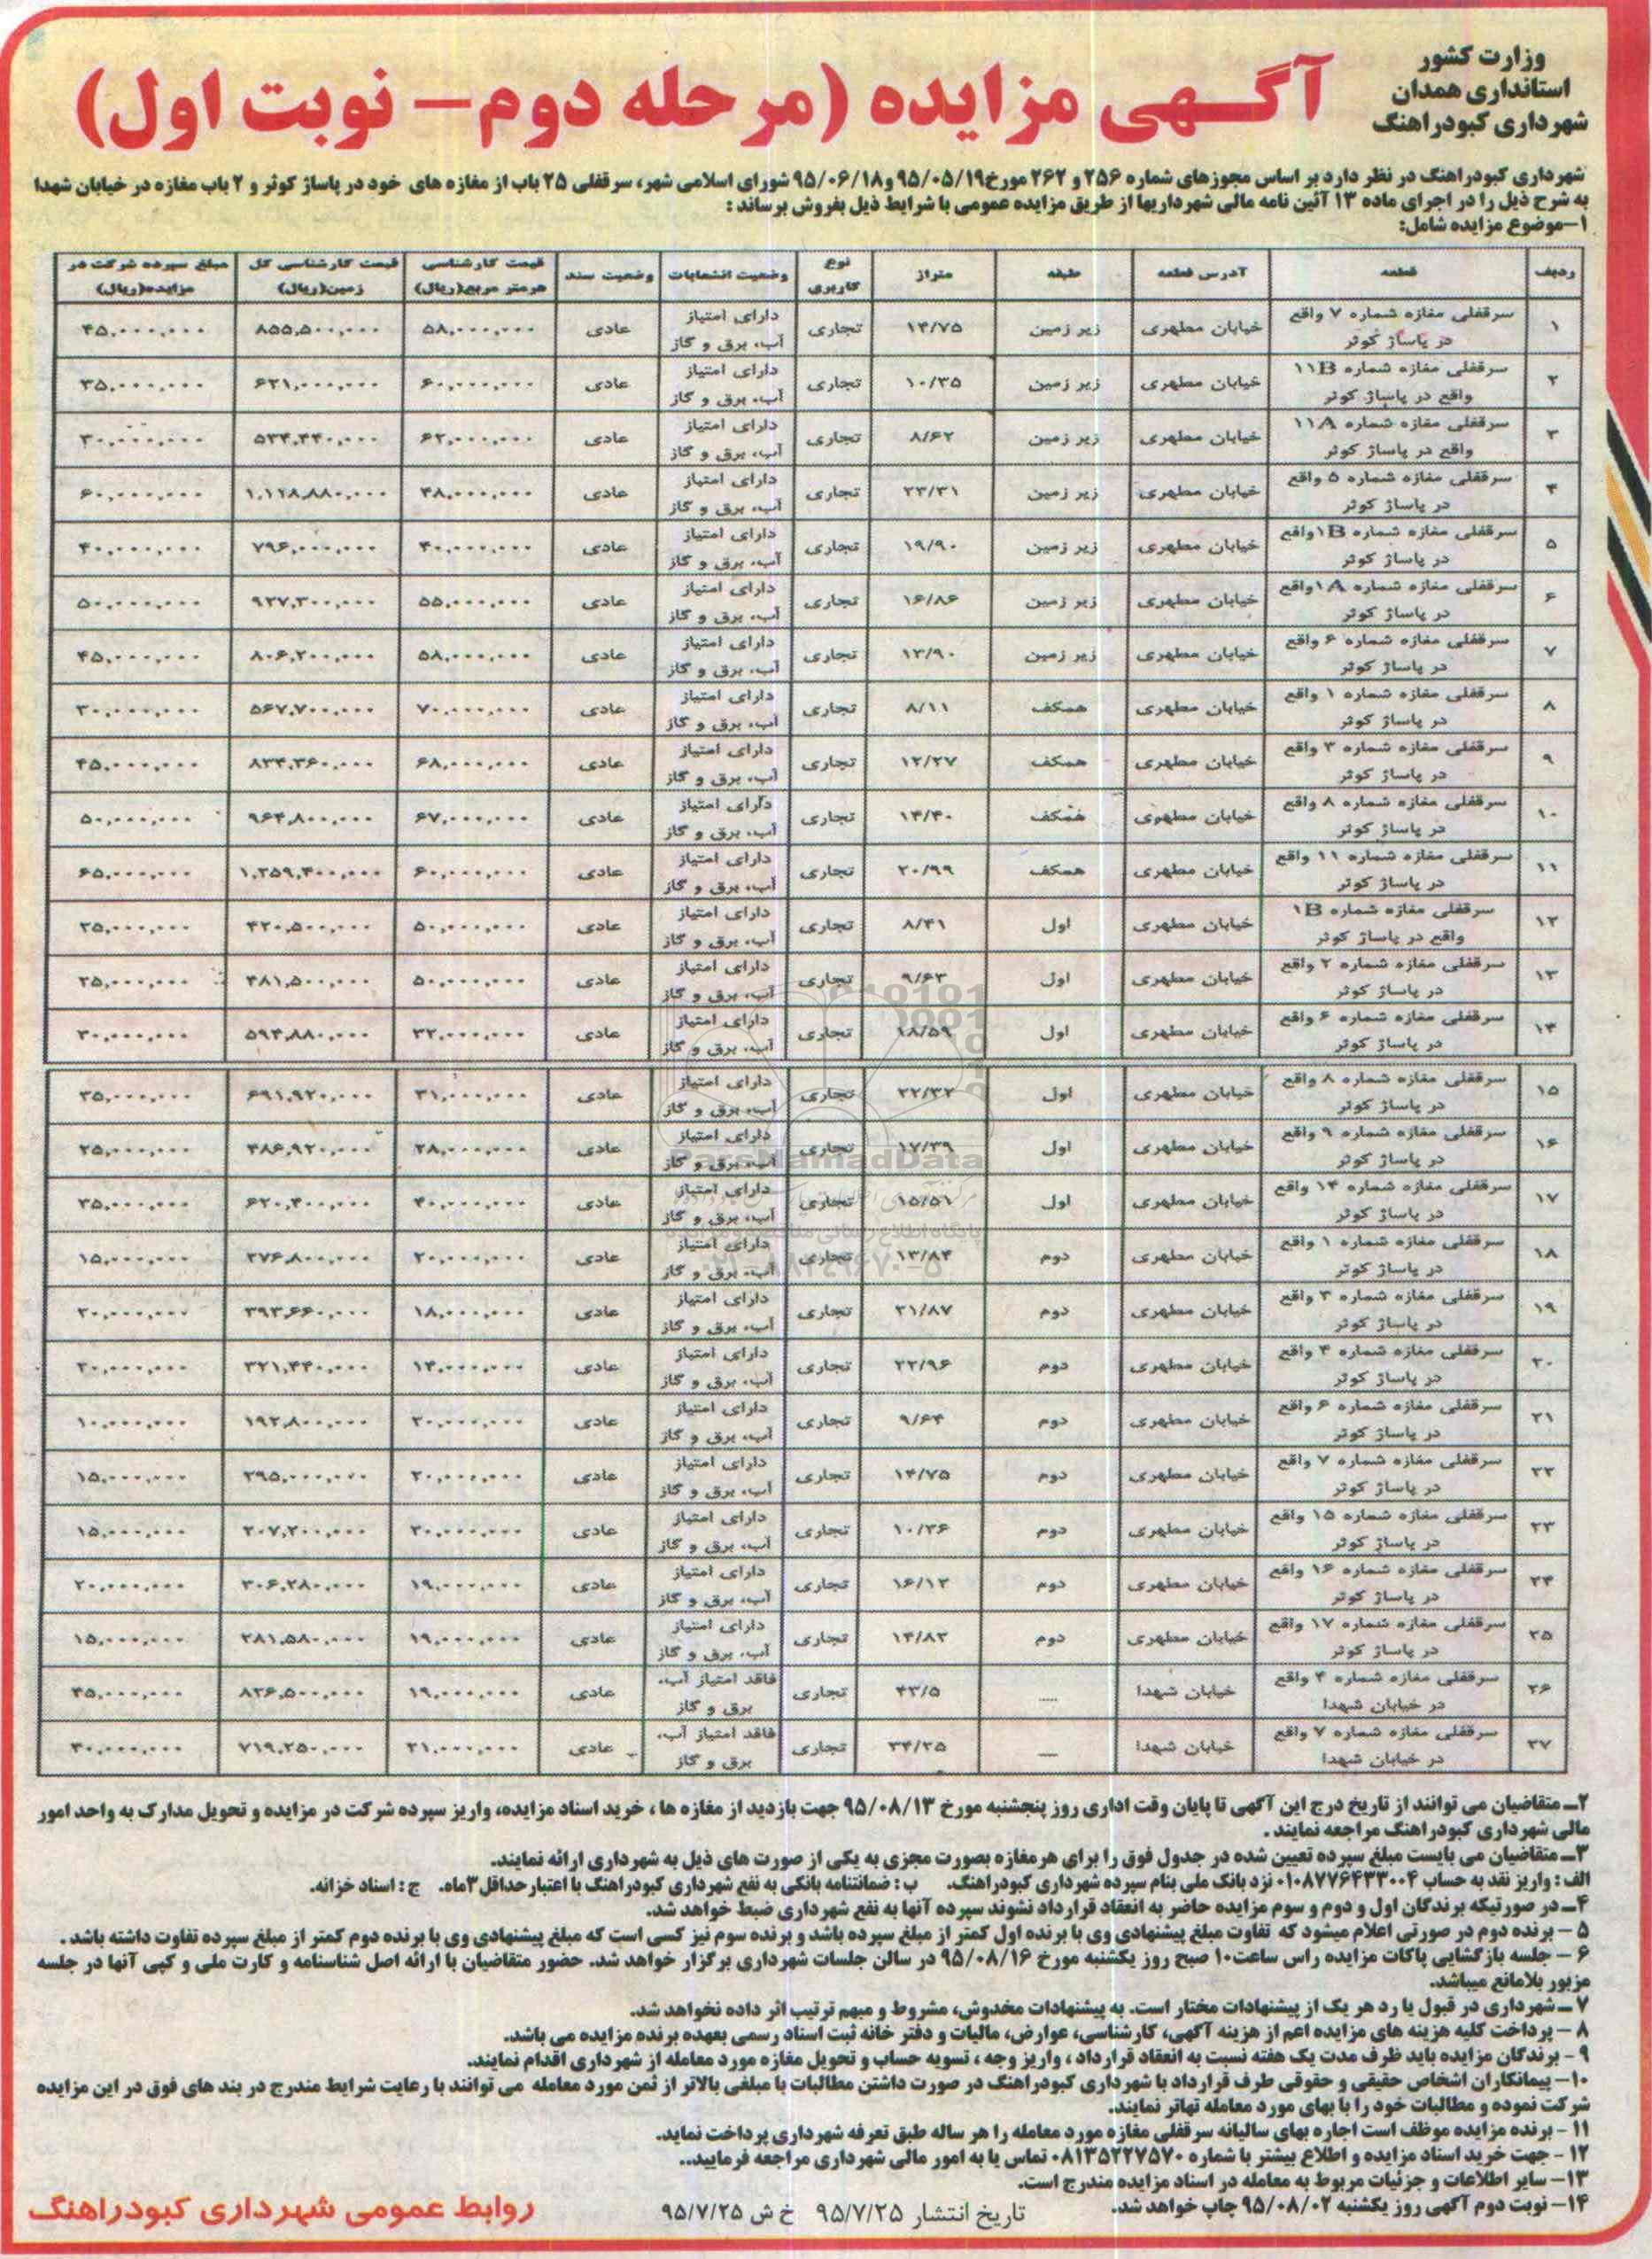 وزارت کشور
استانداری همدان
شهرداری کبودراهنگ
آگهی مزایده (مرحله دوم– نوبت اول)
شهرداری کبودراهنگ در نظر دارد بر اساس مجوزهای شماره ۲۵۶ و ۲۶۲ مورخ۹۵/۰۵/۱۹ و۹۵/۰۶/۱۸ شورای اسلامی شهر، سرقفلی ۲۵ باب از مغازه های خود در پاساژ کوثر و ۲ باب مغازه در خیابان شهدا
به شرح ذیل را در اجرای ماده ۱۳ آئین نامه مالی شهرداریها از طریق مزایده عمومی با شرایط ذیل بفروش برساند :
۱–موضوع مزایده شامل:
ردیف | قطعه | آدرس قطعه | طبقه | متراژ | نوع کاربری | وضعیت انشعابات | وضعیت سند | قیمت کارشناسی هرمتر مربع(ریال) | قیمت کارشناسی کل زمین(ریال) | مبلغ سپرده شرکت در مزایده(ریال)
۱ | سرقفلی مغازه شماره ۷ واقع در پاساژ کوثر | خیابان مطهری | زیر زمین | ۱۴/۷۵ | تجاری | دارای امتیاز آب، برق و گاز | عادی | ۵۸,۰۰۰,۰۰۰ | ۸۵۵,۵۰۰,۰۰۰ | ۴۵,۰۰۰,۰۰۰
۲ | سرقفلی مغازه شماره ۱۱B واقع در پاساژ کوثر | خیابان مطهری | زیر زمین | ۱۰/۳۵ | تجاری | دارای امتیاز آب، برق و گاز | عادی | ۶۰,۰۰۰,۰۰۰ | ۶۲۱,۰۰۰,۰۰۰ | ۳۵,۰۰۰,۰۰۰
۳ | سرقفلی مغازه شماره ۱۱A واقع در پاساژ کوثر | خیابان مطهری | زیر زمین | ۸/۶۲ | تجاری | دارای امتیاز آب، برق و گاز | عادی | ۶۲,۰۰۰,۰۰۰ | ۵۳۴,۴۴۰,۰۰۰ | ۳۰,۰۰۰,۰۰۰
۴ | سرقفلی مغازه شماره ۵ واقع در پاساژ کوثر | خیابان مطهری | زیر زمین | ۲۳/۳۱ | تجاری | دارای امتیاز آب، برق و گاز | عادی | ۴۸,۰۰۰,۰۰۰ | ۱,۱۱۸,۸۸۰,۰۰۰ | ۶۰,۰۰۰,۰۰۰
۵ | سرقفلی مغازه شماره ۱B واقع در پاساژ کوثر | خیابان مطهری | زیر زمین | ۱۹/۹۰ | تجاری | دارای امتیاز آب، برق و گاز | عادی | ۴۰,۰۰۰,۰۰۰ | ۷۹۶,۰۰۰,۰۰۰ | ۴۰,۰۰۰,۰۰۰
۶ | سرقفلی مغازه شماره ۱A واقع در پاساژ کوثر | خیابان مطهری | زیر زمین | ۱۶/۸۶ | تجاری | دارای امتیاز آب، برق و گاز | عادی | ۵۵,۰۰۰,۰۰۰ | ۹۲۷,۳۰۰,۰۰۰ | ۵۰,۰۰۰,۰۰۰
۷ | سرقفلی مغازه شماره ۶ واقع در پاساژ کوثر | خیابان مطهری | زیر زمین | ۱۳/۹۰ | تجاری | دارای امتیاز آب، برق و گاز | عادی | ۵۸,۰۰۰,۰۰۰ | ۸۰۶,۲۰۰,۰۰۰ | ۴۵,۰۰۰,۰۰۰
۸ | سرقفلی مغازه شماره ۱ واقع در پاساژ کوثر | خیابان مطهری | همکف | ۸/۱۱ | تجاری | دارای امتیاز آب، برق و گاز | عادی | ۷۰,۰۰۰,۰۰۰ | ۵۶۷,۷۰۰,۰۰۰ | ۳۰,۰۰۰,۰۰۰
۹ | سرقفلی مغازه شماره ۳ واقع در پاساژ کوثر | خیابان مطهری | همکف | ۱۲/۲۷ | تجاری | دارای امتیاز آب، برق و گاز | عادی | ۶۸,۰۰۰,۰۰۰ | ۸۳۴,۳۶۰,۰۰۰ | ۴۵,۰۰۰,۰۰۰
۱۰ | سرقفلی مغازه شماره ۸ واقع در پاساژ کوثر | خیابان مطهری | همکف | ۱۴/۴۰ | تجاری | دارای امتیاز آب، برق و گاز | عادی | ۶۷,۰۰۰,۰۰۰ | ۹۶۴,۸۰۰,۰۰۰ | ۵۰,۰۰۰,۰۰۰
۱۱ | سرقفلی مغازه شماره ۱۱ واقع در پاساژ کوثر | خیابان مطهری | همکف | ۲۰/۹۹ | تجاری | دارای امتیاز آب، برق و گاز | عادی | ۶۰,۰۰۰,۰۰۰ | ۱,۲۵۹,۴۰۰,۰۰۰ | ۶۵,۰۰۰,۰۰۰
۱۲ | سرقفلی مغازه شماره ۱B واقع در پاساژ کوثر | خیابان مطهری | اول | ۸/۴۱ | تجاری | دارای امتیاز آب، برق و گاز | عادی | ۵۰,۰۰۰,۰۰۰ | ۴۲۰,۵۰۰,۰۰۰ | ۲۵,۰۰۰,۰۰۰
۱۳ | سرقفلی مغازه شماره ۲ واقع در پاساژ کوثر | خیابان مطهری | اول | ۹/۶۳ | تجاری | دارای امتیاز آب، برق و گاز | عادی | ۵۰,۰۰۰,۰۰۰ | ۴۸۱,۵۰۰,۰۰۰ | ۲۵,۰۰۰,۰۰۰
۱۴ | سرقفلی مغازه شماره ۶ واقع در پاساژ کوثر | خیابان مطهری | اول | ۱۸/۵۹ | تجاری | دارای امتیاز آب، برق و گاز | عادی | ۳۲,۰۰۰,۰۰۰ | ۵۹۴,۸۸۰,۰۰۰ | ۳۰,۰۰۰,۰۰۰
۱۵ | سرقفلی مغازه شماره ۸ واقع در پاساژ کوثر | خیابان مطهری | اول | ۲۲/۳۲ | تجاری | دارای امتیاز آب، برق و گاز | عادی | ۳۱,۰۰۰,۰۰۰ | ۶۹۱,۹۲۰,۰۰۰ | ۳۵,۰۰۰,۰۰۰
۱۶ | سرقفلی مغازه شماره ۹ واقع در پاساژ کوثر | خیابان مطهری | اول | ۱۷/۳۹ | تجاری | دارای امتیاز آب، برق و گاز | عادی | ۲۸,۰۰۰,۰۰۰ | ۴۸۶,۹۲۰,۰۰۰ | ۲۵,۰۰۰,۰۰۰
۱۷ | سرقفلی مغازه شماره ۱۴ واقع در پاساژ کوثر | خیابان مطهری | اول | ۱۵/۵۱ | تجاری | دارای امتیاز آب، برق و گاز | عادی | ۴۰,۰۰۰,۰۰۰ | ۶۲۰,۴۰۰,۰۰۰ | ۳۵,۰۰۰,۰۰۰
۱۸ | سرقفلی مغازه شماره ۱ واقع در پاساژ کوثر | خیابان مطهری | دوم | ۱۳/۸۴ | تجاری | دارای امتیاز آب، برق و گاز | عادی | ۲۰,۰۰۰,۰۰۰ | ۲۷۶,۸۰۰,۰۰۰ | ۱۵,۰۰۰,۰۰۰
۱۹ | سرقفلی مغازه شماره ۳ واقع در پاساژ کوثر | خیابان مطهری | دوم | ۲۱/۸۷ | تجاری | دارای امتیاز آب، برق و گاز | عادی | ۱۸,۰۰۰,۰۰۰ | ۳۹۳,۶۶۰,۰۰۰ | ۲۰,۰۰۰,۰۰۰
۲۰ | سرقفلی مغازه شماره ۴ واقع در پاساژ کوثر | خیابان مطهری | دوم | ۲۲/۹۶ | تجاری | دارای امتیاز آب، برق و گاز | عادی | ۱۴,۰۰۰,۰۰۰ | ۳۲۱,۴۴۰,۰۰۰ | ۲۰,۰۰۰,۰۰۰
۲۱ | سرقفلی مغازه شماره ۶ واقع در پاساژ کوثر | خیابان مطهری | دوم | ۹/۶۴ | تجاری | دارای امتیاز آب، برق و گاز | عادی | ۲۰,۰۰۰,۰۰۰ | ۱۹۲,۸۰۰,۰۰۰ | ۱۰,۰۰۰,۰۰۰
۲۲ | سرقفلی مغازه شماره ۷ واقع در پاساژ کوثر | خیابان مطهری | دوم | ۱۴/۷۵ | تجاری | دارای امتیاز آب، برق و گاز | عادی | ۲۰,۰۰۰,۰۰۰ | ۲۹۵,۰۰۰,۰۰۰ | ۱۵,۰۰۰,۰۰۰
۲۳ | سرقفلی مغازه شماره ۱۵ واقع در پاساژ کوثر | خیابان مطهری | دوم | ۱۰/۳۶ | تجاری | دارای امتیاز آب، برق و گاز | عادی | ۲۰,۰۰۰,۰۰۰ | ۲۰۷,۲۰۰,۰۰۰ | ۱۵,۰۰۰,۰۰۰
۲۴ | سرقفلی مغازه شماره ۱۶ واقع در پاساژ کوثر | خیابان مطهری | دوم | ۱۶/۱۲ | تجاری | دارای امتیاز آب، برق و گاز | عادی | ۱۹,۰۰۰,۰۰۰ | ۳۰۶,۲۸۰,۰۰۰ | ۲۰,۰۰۰,۰۰۰
۲۵ | سرقفلی مغازه شماره ۱۷ واقع در پاساژ کوثر | خیابان مطهری | دوم | ۱۴/۸۲ | تجاری | دارای امتیاز آب، برق و گاز | عادی | ۱۹,۰۰۰,۰۰۰ | ۲۸۱,۵۸۰,۰۰۰ | ۱۵,۰۰۰,۰۰۰
۲۶ | سرقفلی مغازه شماره ۴ واقع در خیابان شهدا | خیابان شهدا | ---- | ۴۳/۵ | تجاری | فاقد امتیاز آب، برق و گاز | عادی | ۱۹,۰۰۰,۰۰۰ | ۸۲۶,۵۰۰,۰۰۰ | ۴۵,۰۰۰,۰۰۰
۲۷ | سرقفلی مغازه شماره ۷ واقع در خیابان شهدا | خیابان شهدا | ---- | ۳۴/۲۵ | تجاری | فاقد امتیاز آب، برق و گاز | عادی | ۲۱,۰۰۰,۰۰۰ | ۷۱۹,۲۵۰,۰۰۰ | ۴۰,۰۰۰,۰۰۰
۲ــ متقاضیان می توانند از تاریخ درج این آگهی تا پایان وقت اداری روز پنجشنبه مورخ ۹۵/۰۸/۱۳ جهت بازدید از مغازه ها ، خرید اسناد مزایده، واریز سپرده شرکت در مزایده و تحویل مدارک به واحد امور
مالی شهرداری کبودراهنگ مراجعه نمایند .
۳ــ متقاضیان می بایست مبلغ سپرده تعیین شده در جدول فوق را برای هرمغازه بصورت مجزی به یکی از صورت های ذیل به شهرداری ارائه نمایند.
الف : واریز نقد به حساب ۰۱۰۸۷۷۶۴۳۳۰۰۴ نزد بانک ملی بنام سپرده شهرداری کبودراهنگ. ب : ضمانتنامه بانکی به نفع شهرداری کبودراهنگ با اعتبارحداقل۳ماه. ج : اسناد خزانه.
۴ــ در صورتیکه برندگان اول و دوم و سوم مزایده حاضر به انعقاد قرارداد نشوند سپرده آنها به نفع شهرداری ضبط خواهد شد.
۵ – برنده دوم در صورتی اعلام میشود که تفاوت مبلغ پیشنهادی وی با برنده اول کمتر از مبلغ سپرده باشد و برنده سوم نیز کسی است که مبلغ پیشنهادی وی با برنده دوم کمتر از مبلغ سپرده تفاوت داشته باشد .
۶ – جلسه بازگشایی پاکات مزایده راس ساعت۱۰ صبح روز یکشنبه مورخ ۹۵/۰۸/۱۶ در سالن جلسات شهرداری برگزار خواهد شد. حضور متقاضیان با ارائه اصل شناسنامه و کارت ملی و کپی آنها در جلسه
مزبور بلامانع میباشد.
۷ ــ شهرداری در قبول یا رد هر یک از پیشنهادات مختار است. به پیشنهادات مخدوش، مشروط و مبهم ترتیب اثر داده نخواهد شد.
۸ – پرداخت کلیه هزینه های مزایده اعم از هزینه آگهی، کارشناسی، عوارض، مالیات و دفتر خانه ثبت اسناد رسمی بعهده برنده مزایده می باشد.
۹ – برندگان مزایده باید ظرف مدت یک هفته نسبت به انعقاد قرارداد ، واریز وجه ، تسویه حساب و تحویل مغازه مورد معامله از شهرداری اقدام نمایند.
۱۰– پیمانکاران اشخاص حقیقی و حقوقی طرف قرارداد با شهرداری کبودراهنگ در صورت داشتن مطالبات با مبلغی بالاتر از ثمن مورد معامله می توانند با رعایت شرایط مندرج در بند های فوق در این مزایده
شرکت نموده و مطالبات خود را با بهای مورد معامله تهاتر نمایند.
۱۱ – برنده مزایده موظف است اجاره بهای سالیانه سرقفلی مغازه مورد معامله را هر ساله طبق تعرفه شهرداری پرداخت نماید.
۱۲ – جهت خرید اسناد مزایده و اطلاع بیشتر با شماره ۰۸۱۳۵۲۲۷۵۷۰ تماس یا به امور مالی شهرداری مراجعه فرمایید..
۱۳– سایر اطلاعات و جزئیات مربوط به معامله در اسناد مزایده مندرج است.
۱۴– نوبت دوم آگهی روز یکشنبه ۹۵/۰۸/۰۲ چاپ خواهد شد.
تاریخ انتشار ۹۵/۷/۲۵ خ ش ۹۵/۷/۲۵
روابط عمومی شهرداری کبودراهنگ
ParsNamadData